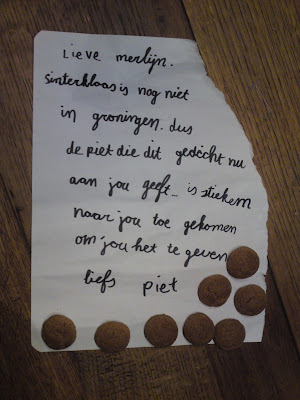 Lieve merlijn.
sinterklaas is nog niet
in groningen. dus
de piet die dit gedicht nu
aan jou geeft is stiekem
naar jou toe gekomen
om jou het te geven
liefs piet